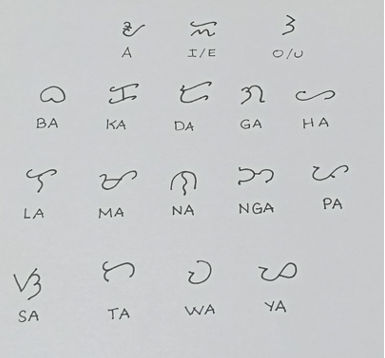 ᜀ ᜁ ᜂ
A I/E O/U
ᜊ ᜃ ᜇ ᜄ ᜑ
BA KA DA GA HA
ᜎ ᜋ ᜈ ᜅ ᜉ
LA MA NA NGA PA
ᜐ ᜆ ᜏ ᜌ
SA TA WA YA